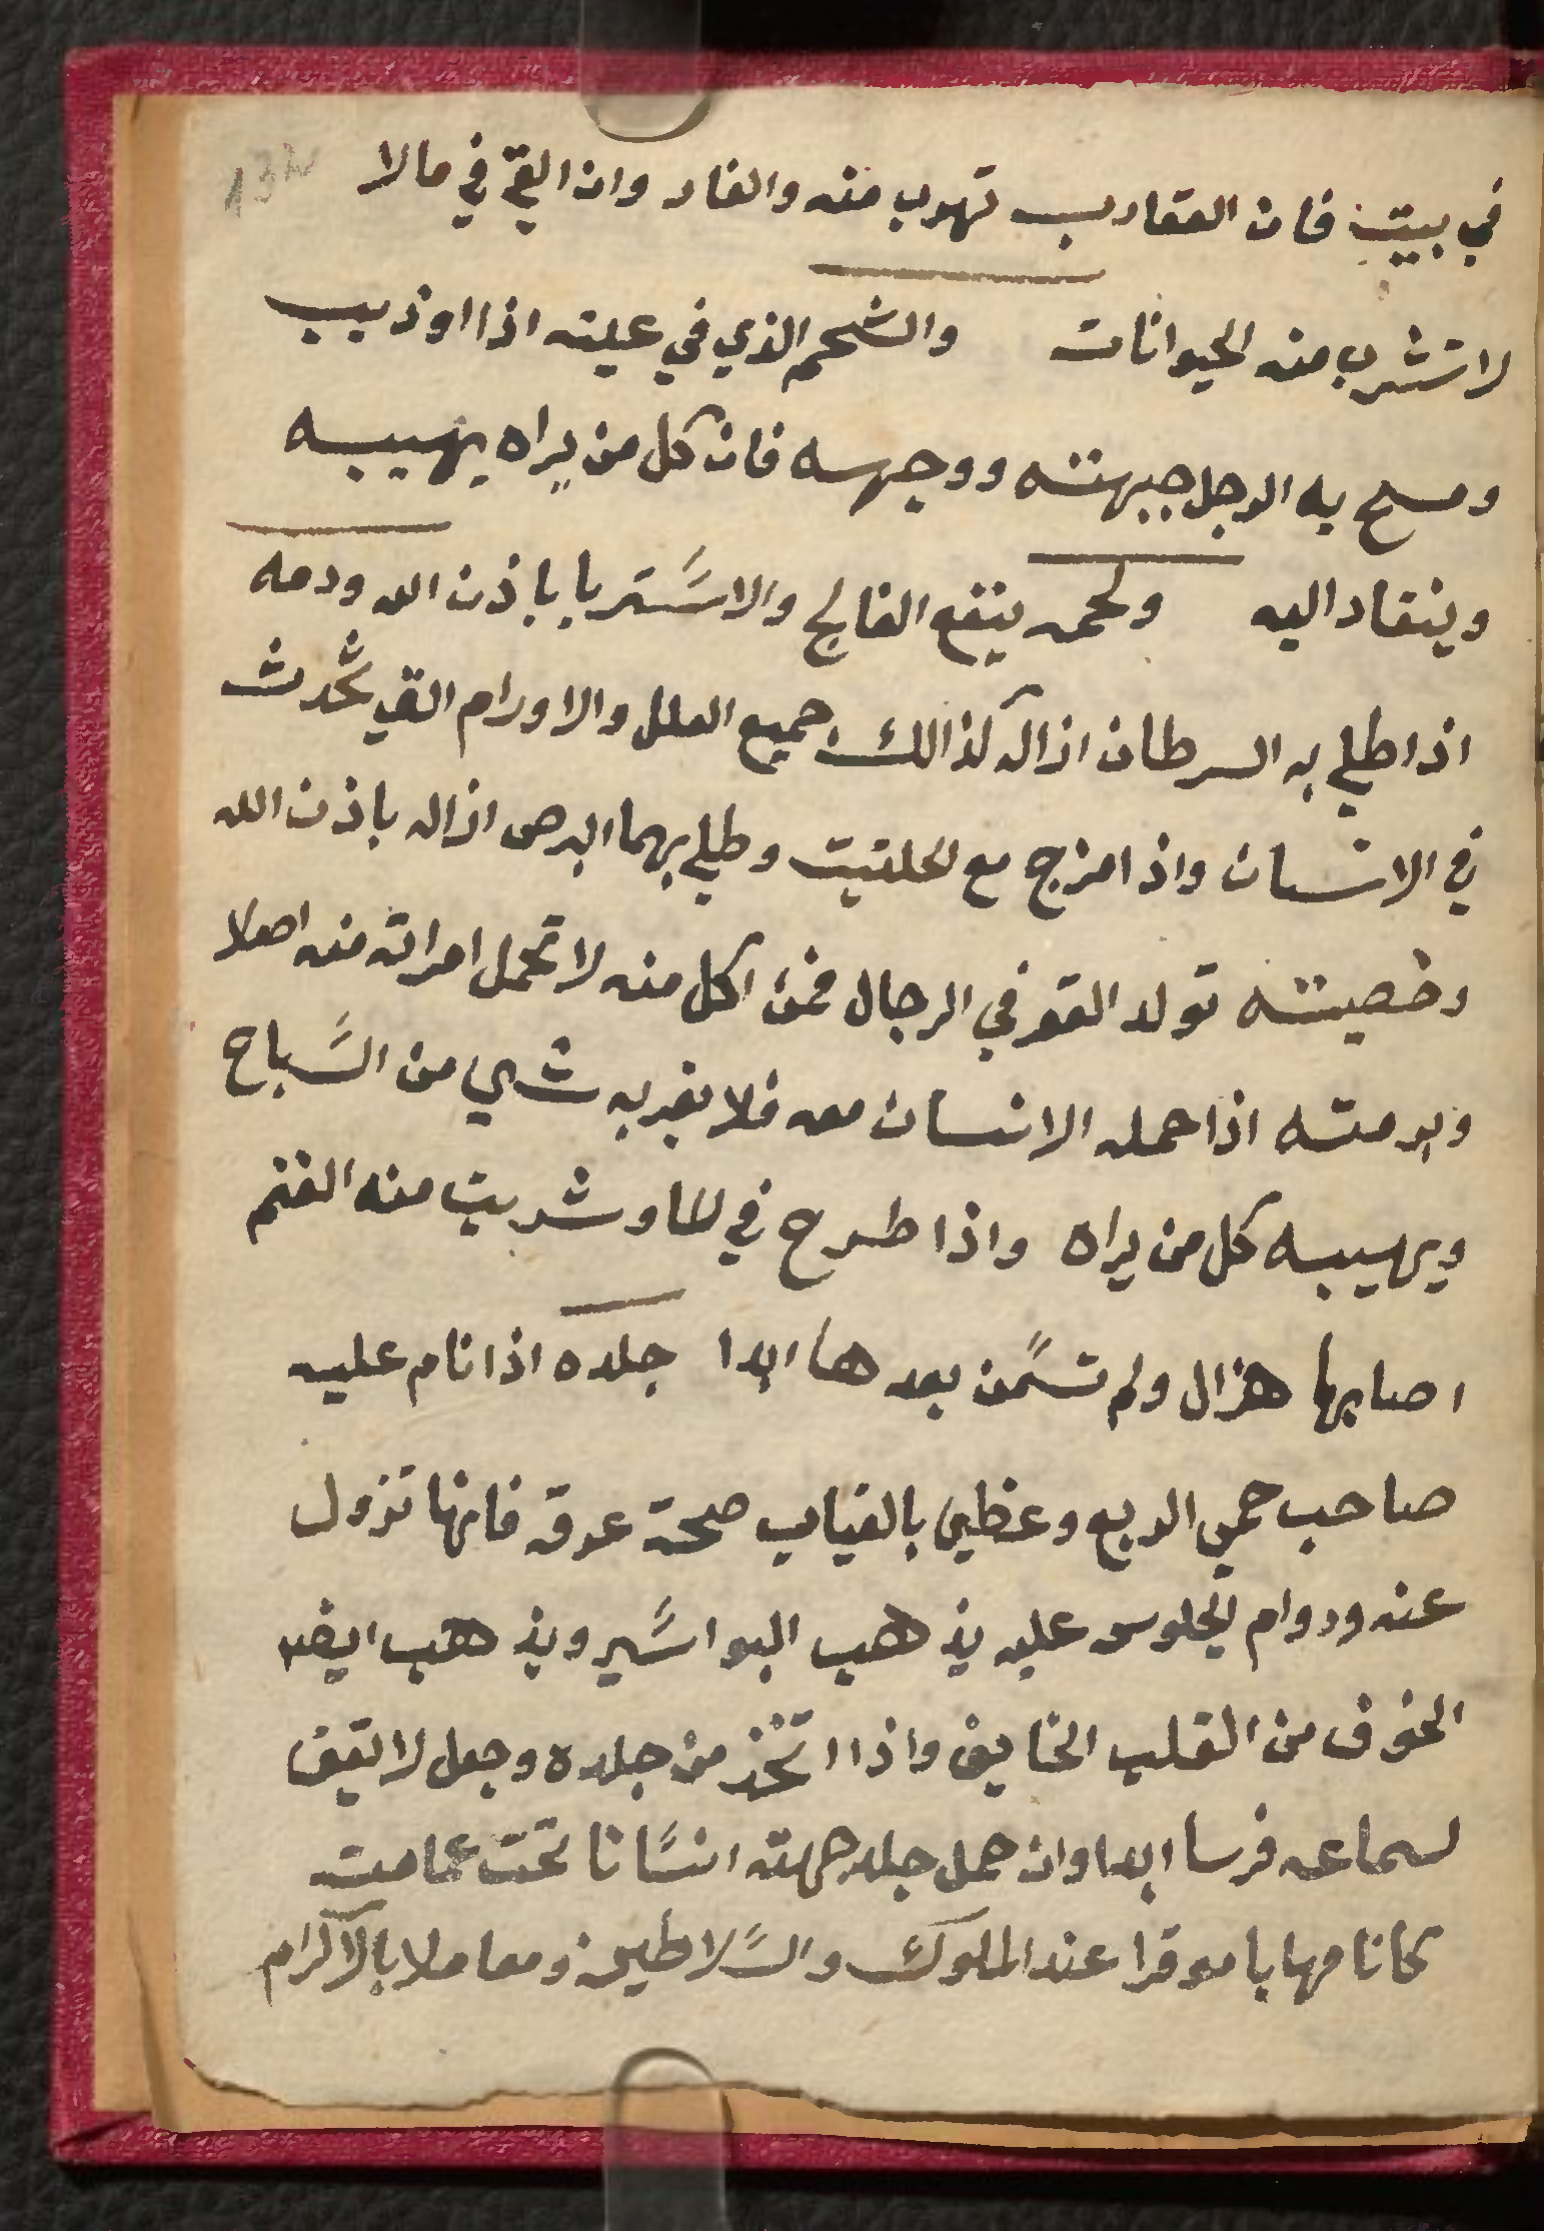 في بيت فان العقارب تهرب منه والفار وان القي في ما لا
لا تشرب منه الحيوانات والشحم الذي في عليته اذا اوذيب
ومسح به الرجل جبهته ووجهه فان كل من يراه يهيبه
وينقاد اليه ولحمه ينفع الفالج والاستربا باذن الله ودمه
اذا طلي به السرطان ازاله كذالك جميع العلل والاورام التي تحدث
في الانسان واذا مزج مع لحلتيت وطلي بهما البرص ازاله باذن الله
وخصيته تولد القو في الرجال فمن اكل منه لا تحمل امراته منه اصلا
وبرمته اذا حمله الانسان معه فلا يقربه شي من السباح
ويهيبه كل من يراه واذا طرح في لما وشربت منه الغنم
اصابها هزال ولم تسمن بعدها ابدا جلده اذا نام عليه
صاحب حمي الربع وغطي بالثياب صحة عرقه فانها تزول
عنه ودوام لجلوس عليه يذهب البواسير ويذهب ايضا
الخوف من القلب الخايف واذا اتخذ من جلده وجعل لا تقف
لسماعه فرسا ابدا وان حمل جلد جبهته انسانا تحت عمامت
كانا مهابا موقرا عند الملوك والسلاطين ومعاملا بالاكرام